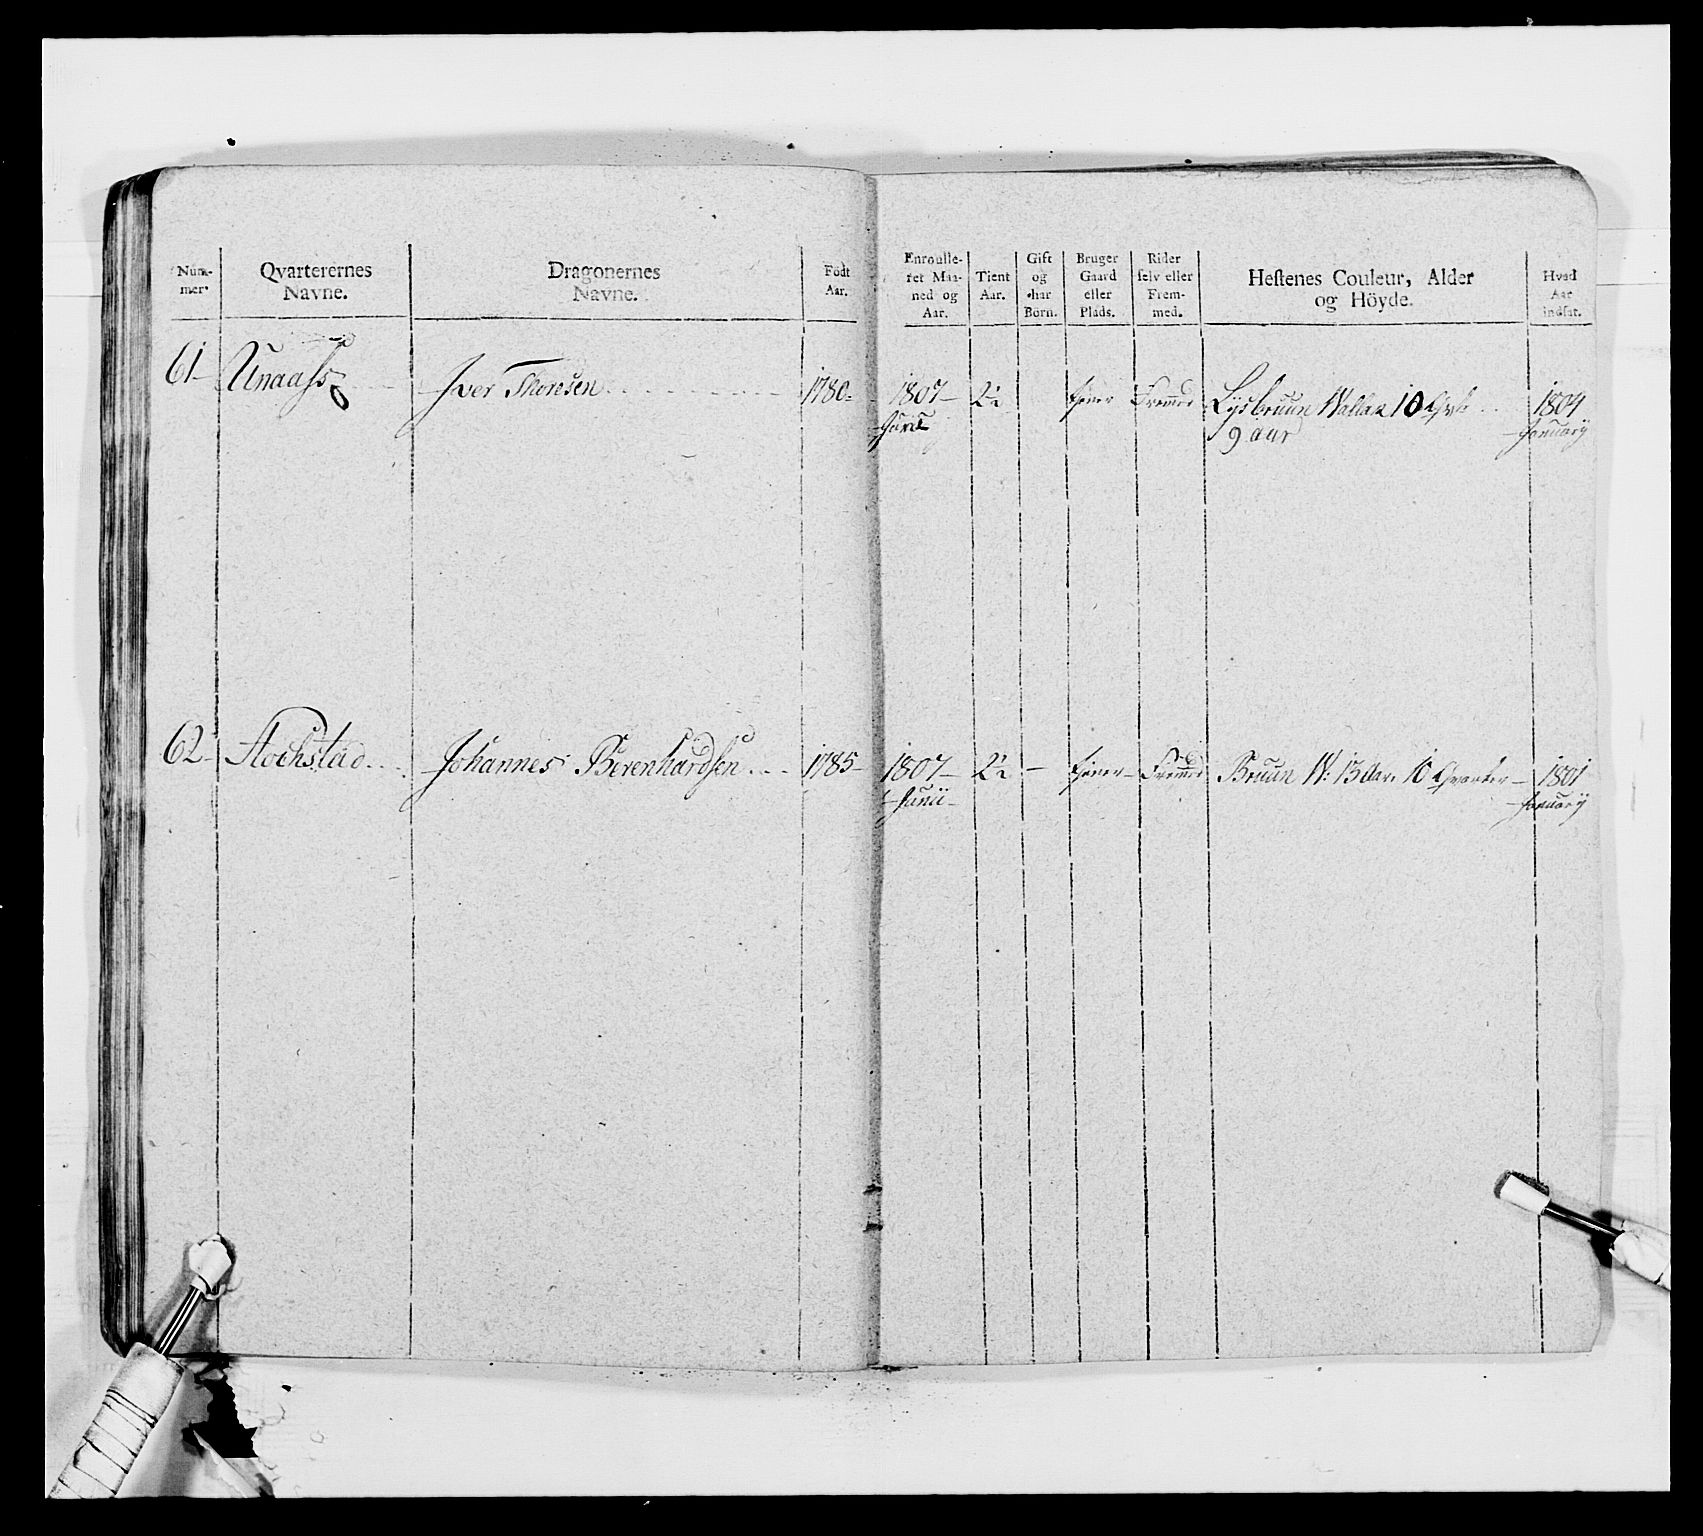 Num-
mer
Qvarterernes
Navne.
Dragonernes
Navne.
Födt
Aar.
Enroulle-
ret Maa-
ned og
Aar.
Tient
Aar.
Gift
og
har
Börn.
Bruger
Gaard
eller
Plads.
Rider
selv eller
Frem-
med.
Hestenes Couleur, Alder
og Höyde.
Hvad
Aar
indsat.
61 Unaass Iver Thoresen 1780 1807 2 tjener Fremmed Lysbruun Wallak 10 Qvt 1804
Junii 9 aar January
62 Stochstad Johannes Berenhardsen 1785 1807 2 tjener Fremmed Bruun W: 13 Aar 10 Qvarter 1801
Junii January